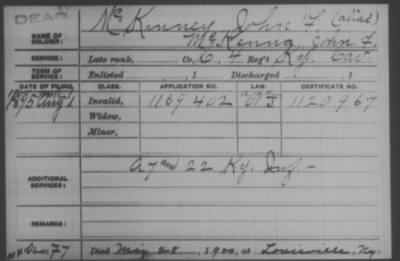 DEAD
McKinney, John F. (alias)
NAME OF SOLDIER: McKenna, John F.
SERVICE: Late rank, Co. C, 4 Reg't Ky. Cav.
TERM OF SERVICE: Enlisted , 1 Discharged , 1
DATE OF FILING. CLASS. APPLICATION NO. LAW. CERTIFICATE NO.
1895 Aug 1 Invalid, 1169402 1120967
Widow,
Minor,
ADDITIONAL SERVICES: A 7 and 22 Ky. Inf -
REMARKS:
Died May 28, 1900, at Louisville, Ky.